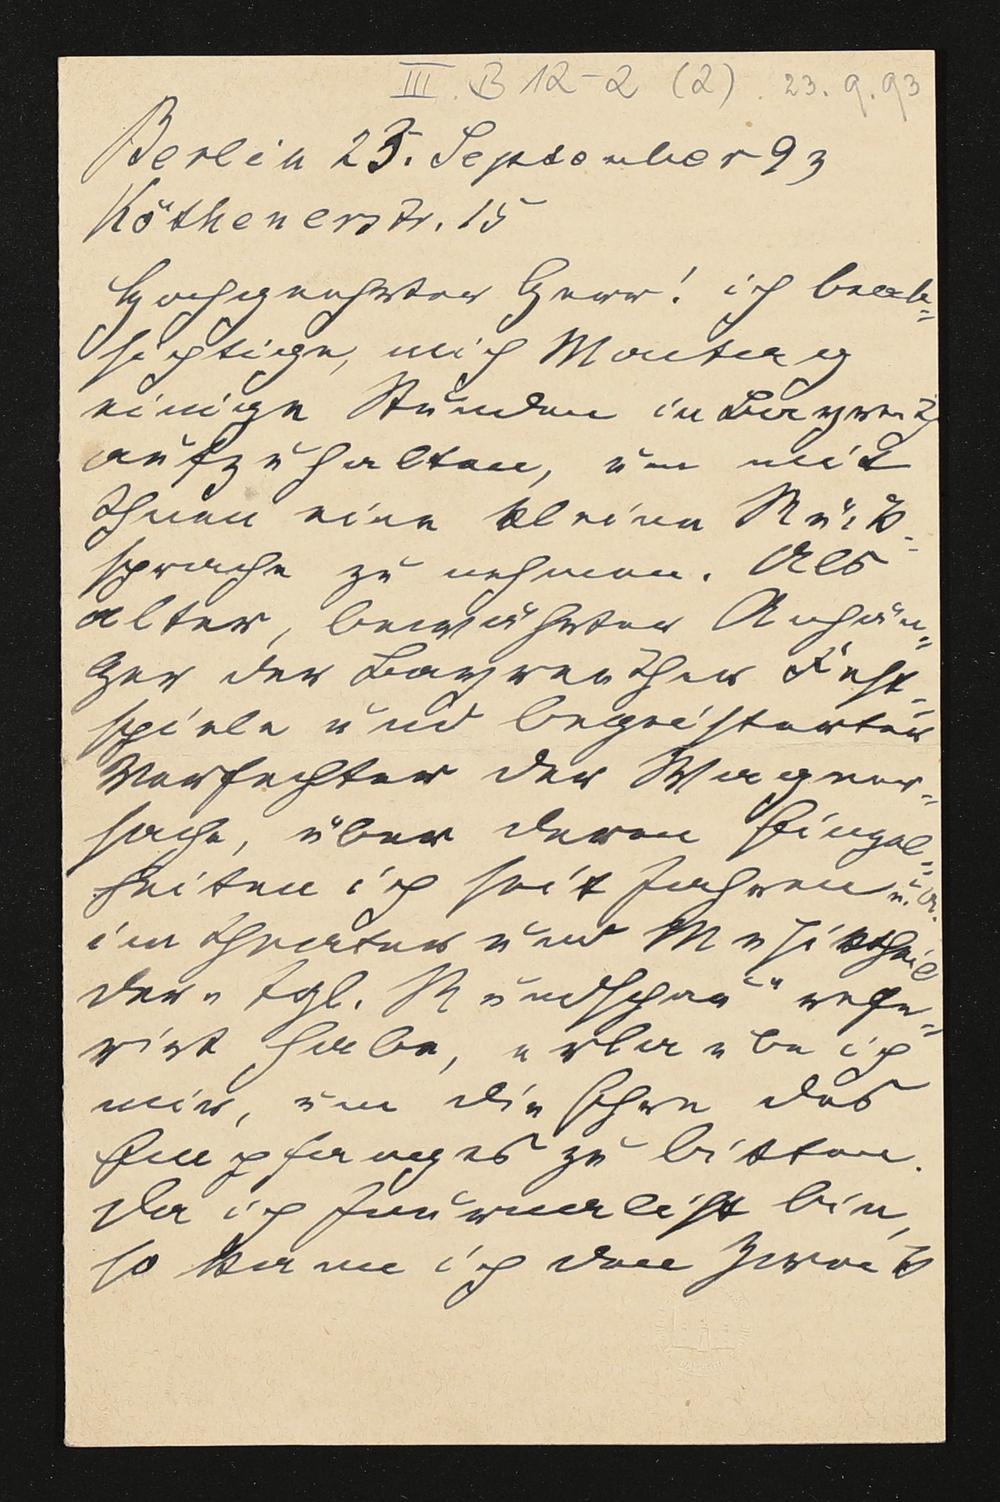 III. B 12-2 (2). 23.9.93
Berlin 23. September 93
Köthenerstr. 15
Hochgeehrter Herr! ich beab-
sichtige, mich Montag
einige Stunden in Bayreuth
aufzuhalten, um mit
Ihnen eine kleine Rück-
sprache zu nehmen. Als
alter, bewährter Anhän-
ger der Bayreuther Fest-
spiele und begeisterter
Verfechter der Wagner-
sache, über deren Einzel-
heiten ich seit Jahren u. a.
im Theater und Musiktheil
der „Tgl. Rundschau" refe-
rirt habe, erlaube ich
mir, um die Ehre des
Empfanges zu bitten.
Da ich Journalist bin,
so kann ich den Zweck